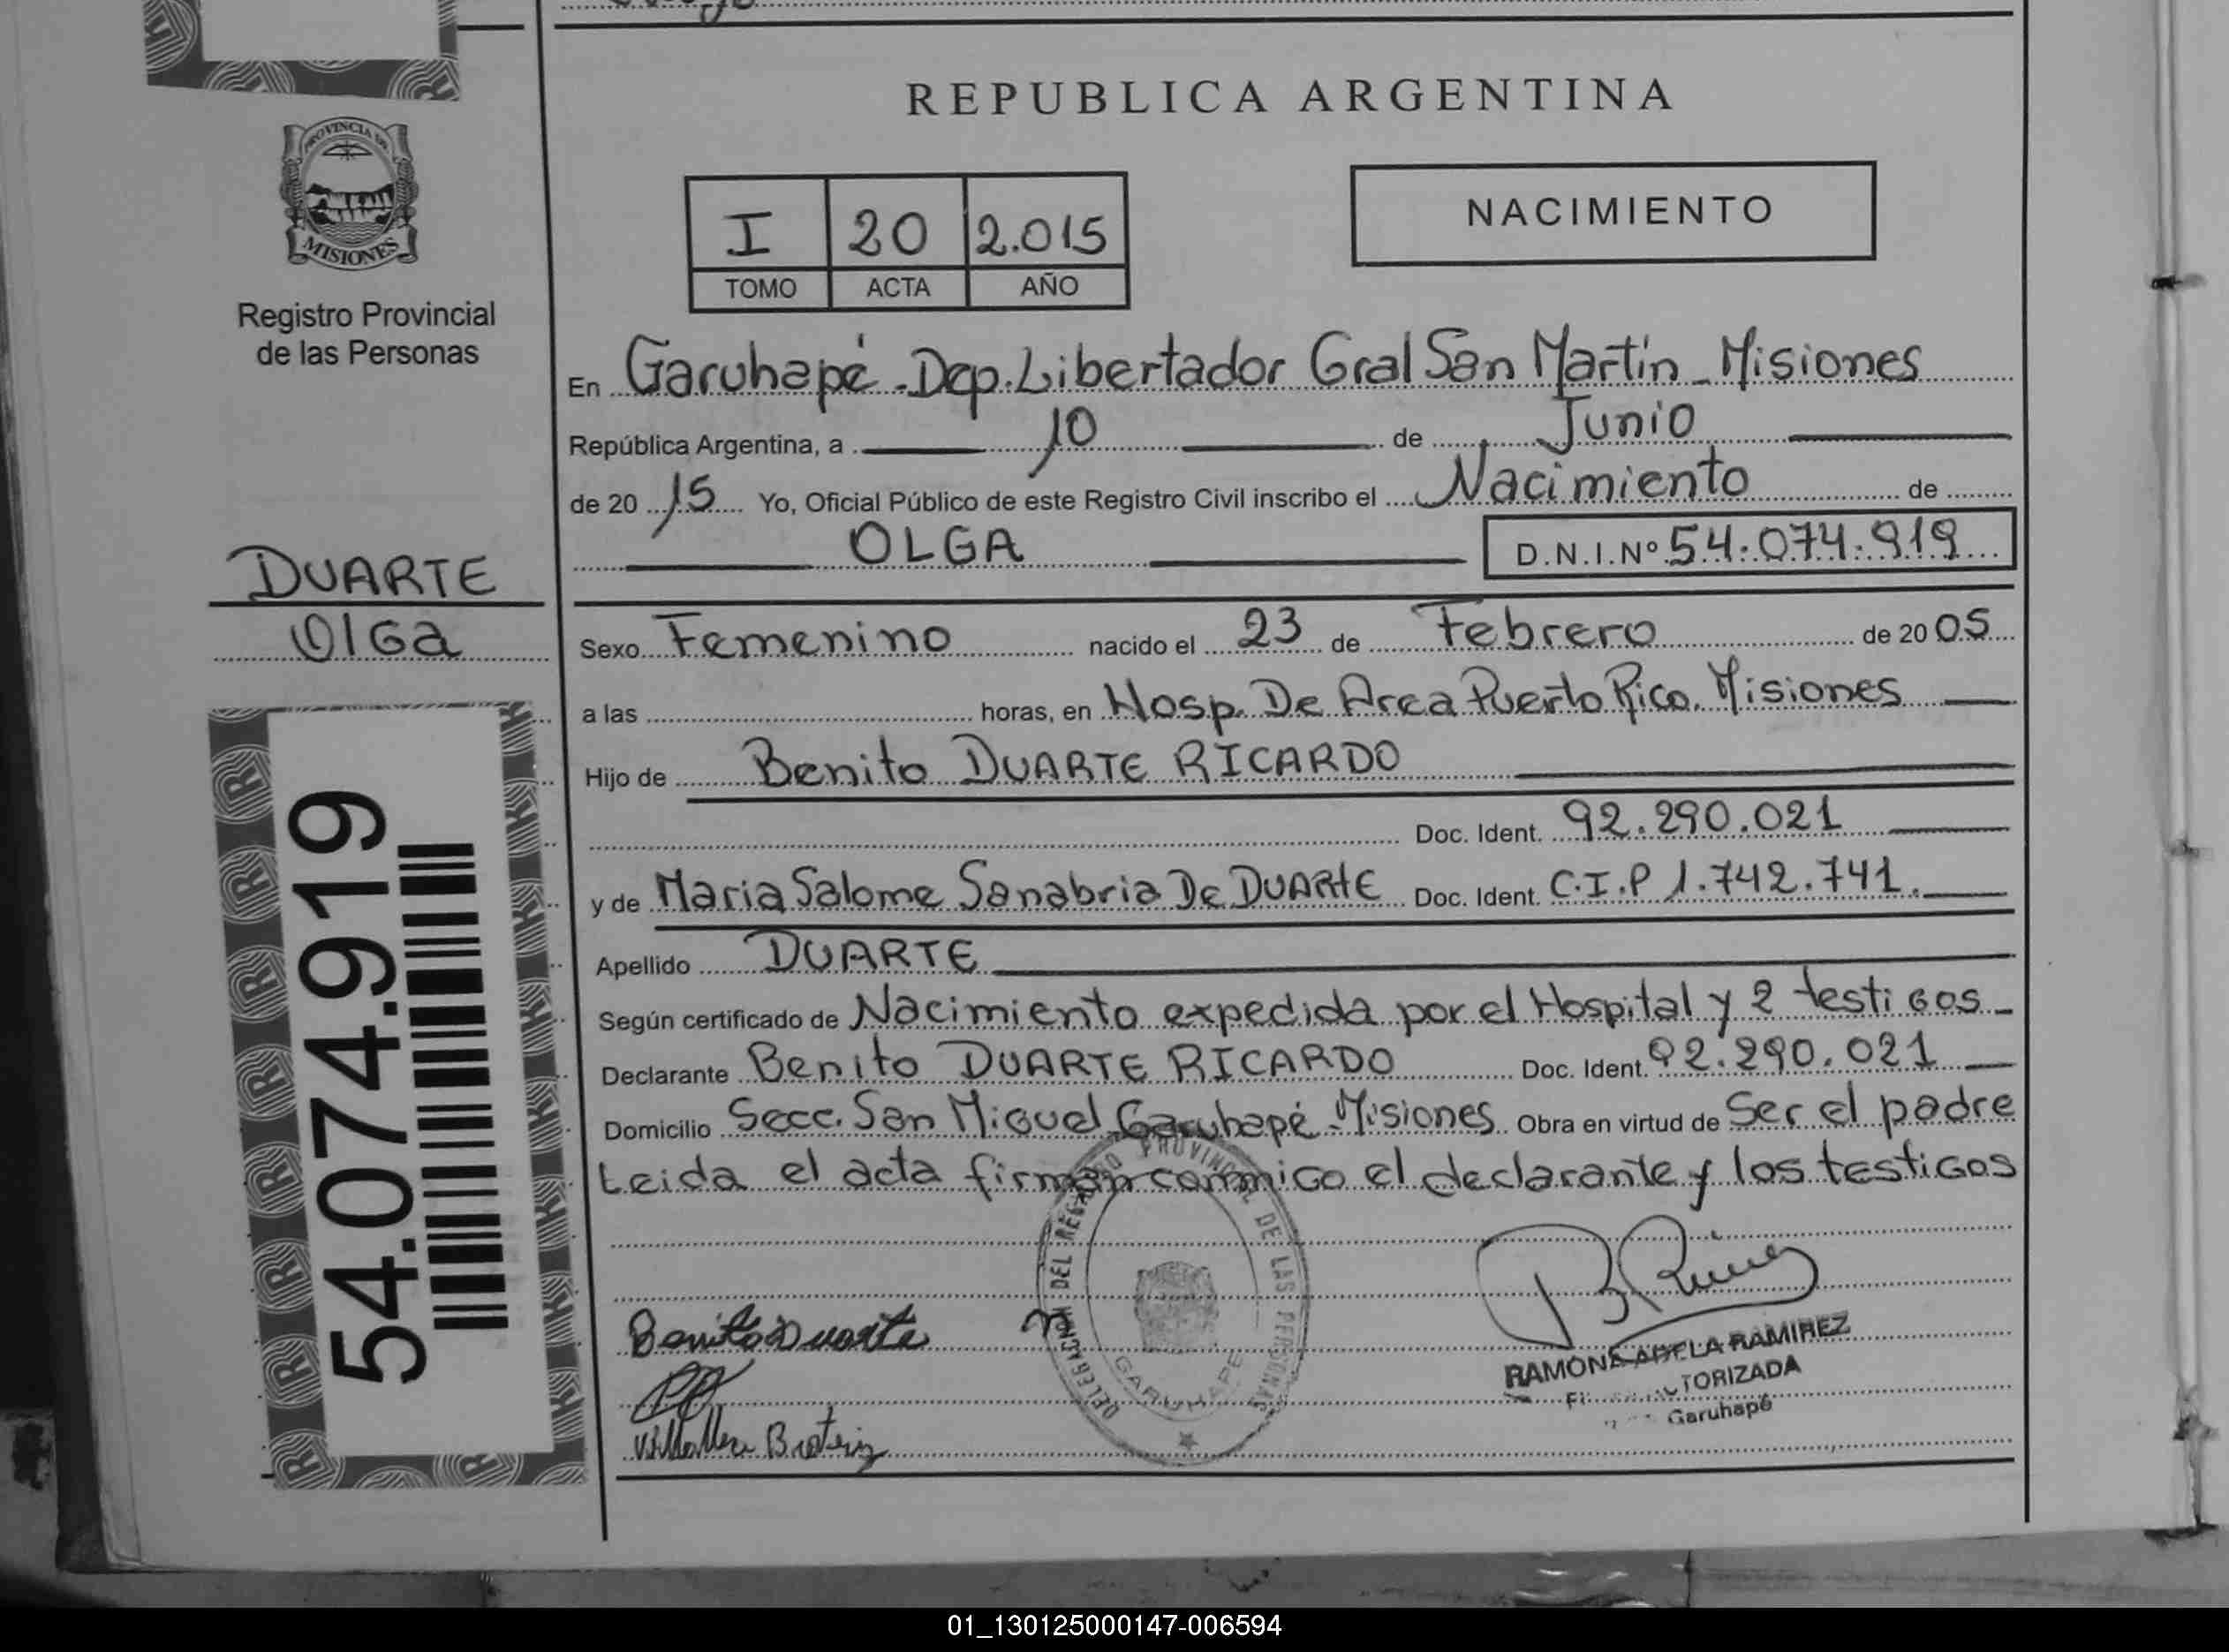 REPUBLICA ARGENTINA
PROVINCIA DE
MISIONES
Registro Provincial
de las Personas
NACIMIENTO
I 20 2.015
TOMO ACTA AÑO
En Garuhapé - Dep. Libertador Gral San Martín - Misiones
República Argentina, a 10 de Junio
de 20 15 Yo, Oficial Público de este Registro Civil inscribo el Nacimiento de
OLGA D.N.I.Nº 54.074.919
DUARTE
Olga
Sexo Femenino nacido el 23 de Febrero de 20 05
a las horas, en Hosp. De Area Puerto Rico. Misiones
Hijo de Benito DUARTE RICARDO
Doc. Ident. 92.290.021
y de Maria Salome Sanabria De DUARTE Doc. Ident. C.I.P 1.742.741.
Apellido DUARTE
Según certificado de Nacimiento expedida por el Hospital y 2 testigos -
Declarante Benito DUARTE RICARDO Doc. Ident. 92.290.021
Domicilio Secc. San Miguel Garuhapé - Misiones Obra en virtud de Ser el padre
Leida el acta firman conmigo el declarante y los testigos
54.074.919
DELEGACION DEL REGISTRO PROVINCIAL DE LAS PERSONAS
GARUHAPE
Benito Duarte
RAMONA ADELA RAMIREZ
TORIZADA
Garuhapé
01_130125000147-006594